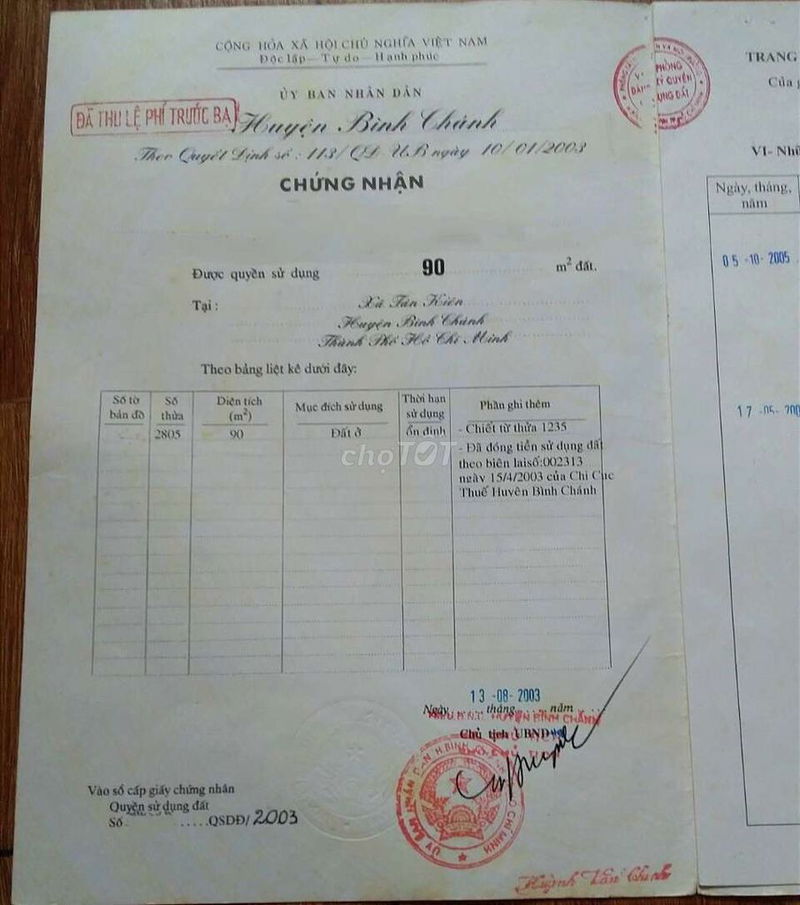 CỘNG HÒA XÃ HỘI CHỦ NGHĨA VIỆT NAM
Độc lập - Tự do - Hạnh phúc
ỦY BAN NHÂN DÂN
ĐÃ THU LỆ PHÍ TRƯỚC BẠ
Huyện Bình Chánh
Theo Quyết Định số : 113/ QĐ-UB ngày 10/01/2003
CHỨNG NHẬN
Được quyền sử dụng 90 m² đất.
Tại : Xã Tân Kiên
Huyện Bình Chánh
Thành Phố Hồ Chí Minh
Theo bảng liệt kê dưới đây:
Số tờ bản đồ
Số thửa
Diện tích (m²)
Mục đích sử dụng
Thời hạn sử dụng
Phần ghi thêm
2805
90
Đất ở
ổn định
- Chiết từ thửa 1235
- Đã đóng tiền sử dụng đất
theo biên lai số:002313
ngày 15/4/2003 của Chi Cục
Thuế Huyện Bình Chánh
chợTỐT
13-08-2003
Ngày tháng năm
HUYỆN BÌNH CHÁNH
Chủ tịch UBND
Vào sổ cấp giấy chứng nhận
Quyền sử dụng đất
Số .....QSDĐ/ 2003
Huỳnh Văn
TRANG
Của
VI- Nhữ
Ngày, tháng,
năm
05-10-2005
17-05-200